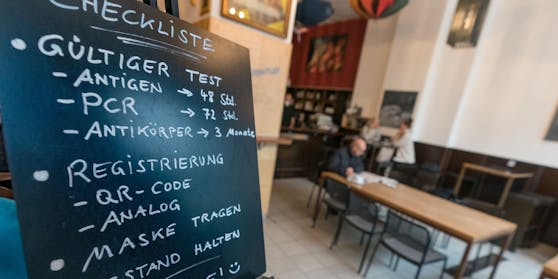 CHECKLISTE
• GÜLTIGER TEST
- ANTIGEN → 48 Std.
- PCR → 72 Std.
- ANTIKÖRPER → 3 Monate
• REGISTRIERUNG
- QR-CODE
- ANALOG
• MASKE TRAGEN
STAND HALTEN